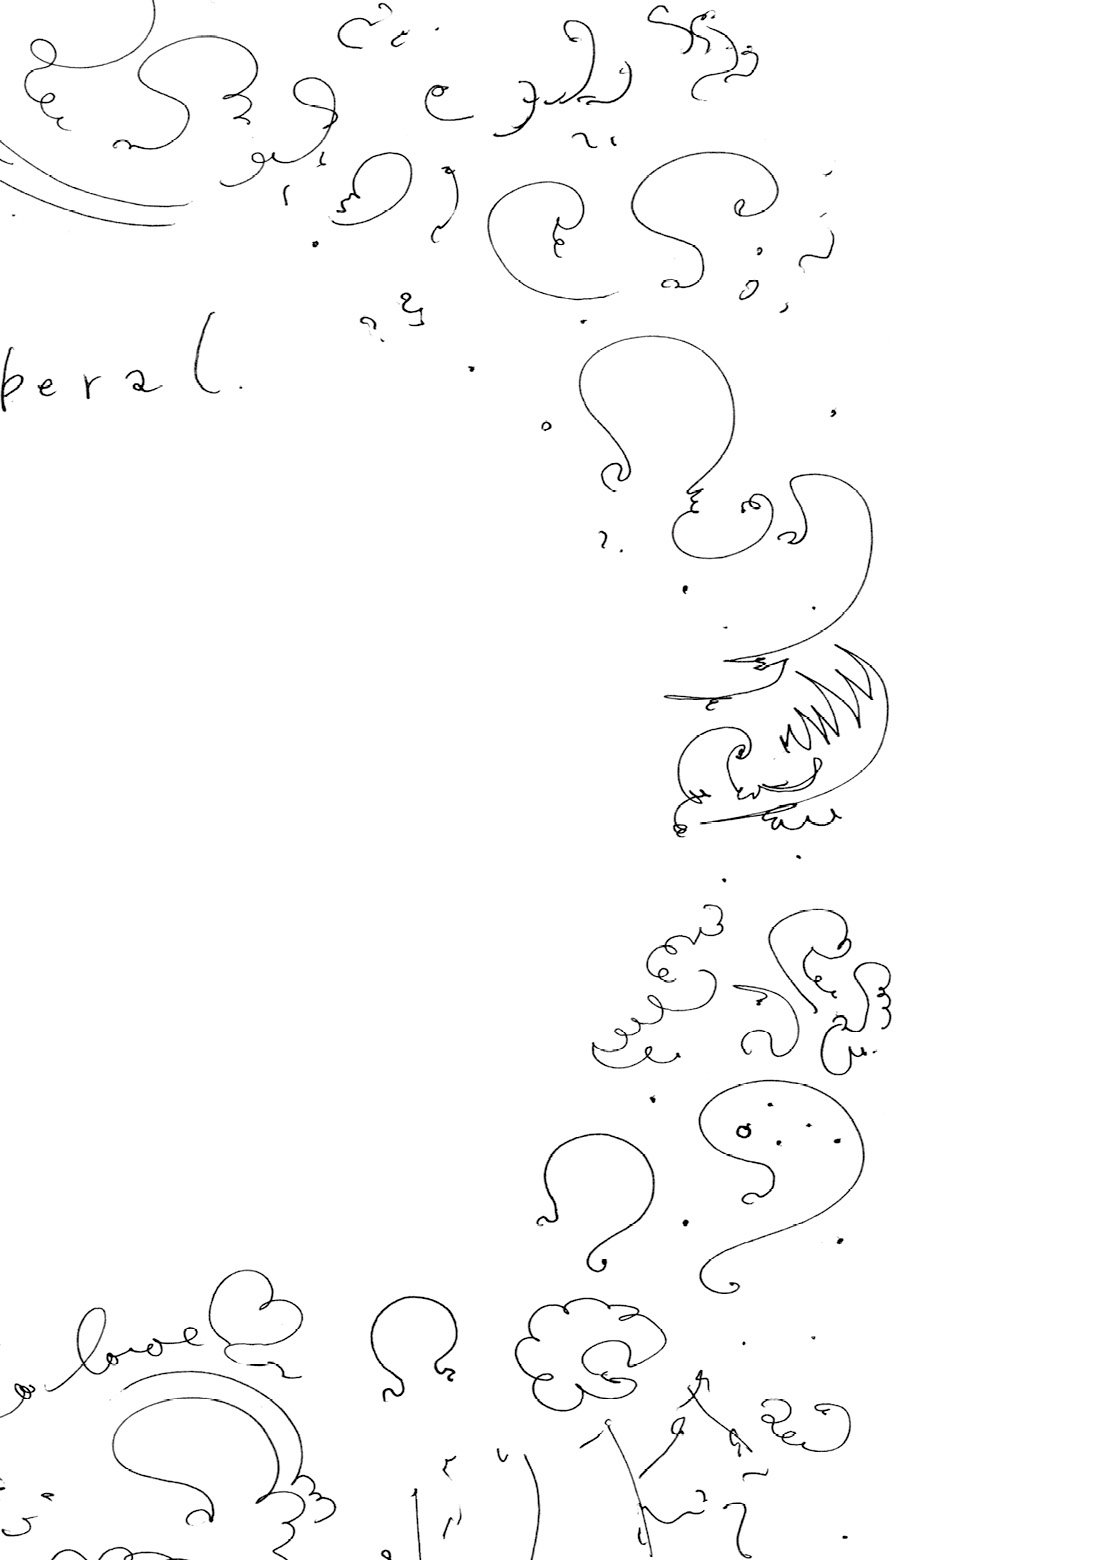 peral.
love